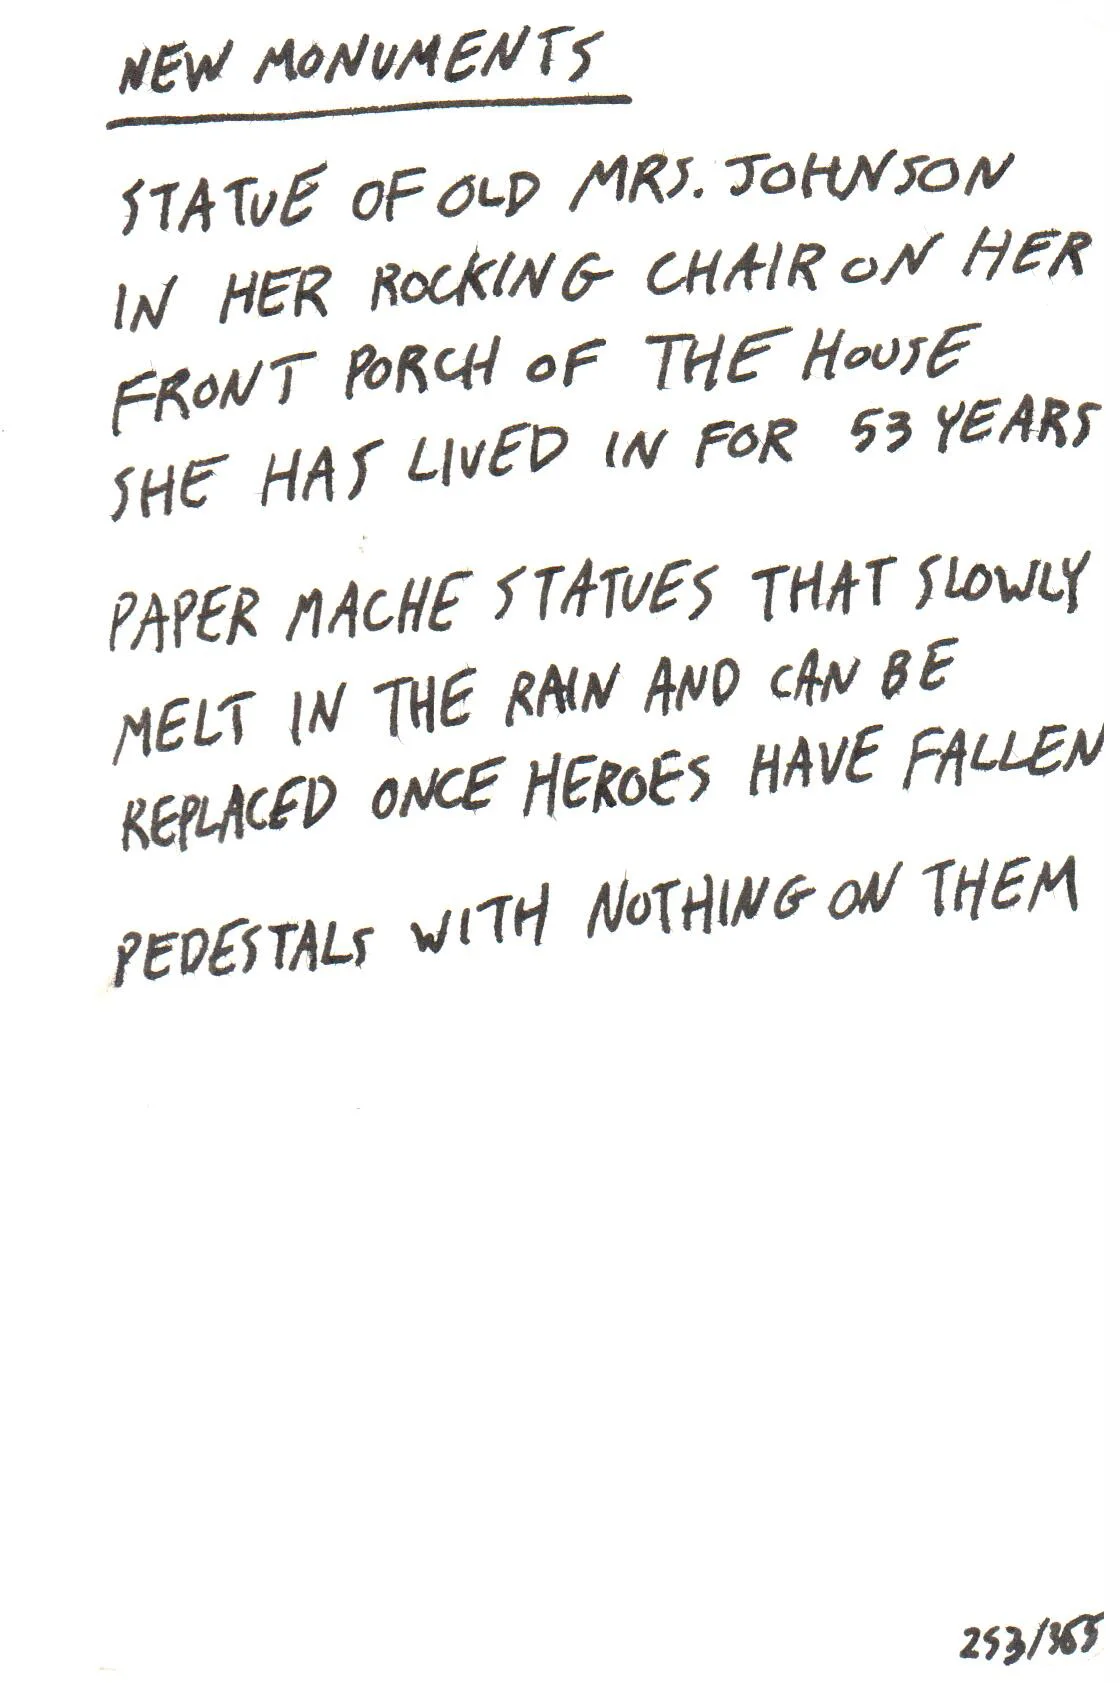 NEW MONUMENTS
STATUE OF OLD MRS. JOHNSON
IN HER ROCKING CHAIR ON HER
FRONT PORCH OF THE HOUSE
SHE HAS LIVED IN FOR 53 YEARS
PAPER MACHE STATUES THAT SLOWLY
MELT IN THE RAIN AND CAN BE
REPLACED ONCE HEROES HAVE FALLEN
PEDESTALS WITH NOTHING ON THEM
253/365